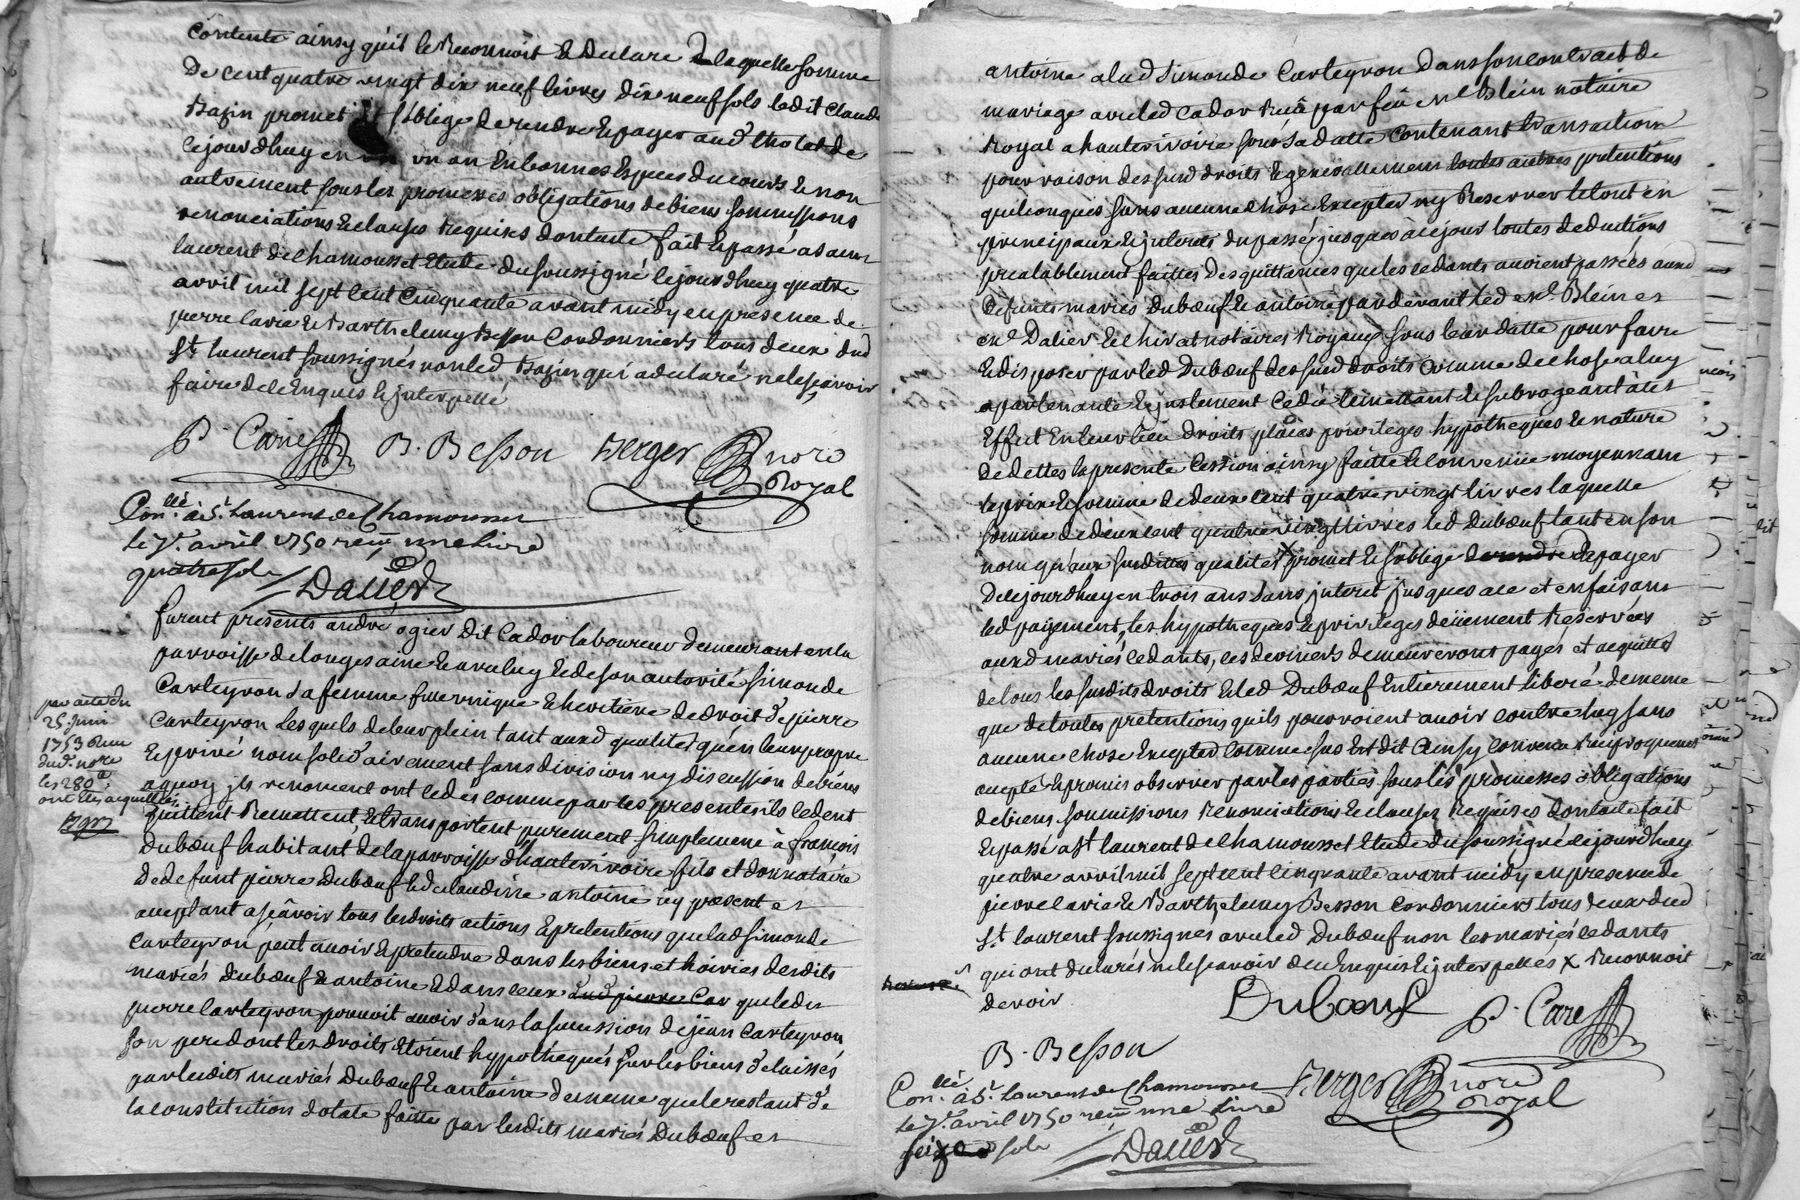 Contente ainsy quil le Reconnoit et Declare Delaquelle somme
De cent quatre vingt dix neuf livres dix neuf sols ledit Claude
Bazin promet et s'oblige de rendre et payer aud
ce jourdhuy en un an En bonnes Especes du cours et non
autrement sous les promesses obligations de biens soumissions
renonciations et clauses requises dont acte fait et passé a saint
laurent de Chamousset Etude du soussigné lejourdhuy quatre
avril mil sept cent cinquante avant midy en presence de
pierre Carie et Barthelemy Besson Cordonniers tous deux dud
St laurent soussignés non led Bazin qui a declaré ne le sçavoir
faire de ce Enquis et interpellé
P. Carie B. Besson Berger nore
Royal
Con.llé à St Laurens de Chamousset
le 7e avril 1750 reçu une livre
quatre sols Dalier
furent presents andré ogier dit Cador laboureur demeurant en la
parroisse de longesaine et avec luy et de son autorité simonde
Carteyron sa femme fille unique et heritiere de droit de pierre
Carteyron Lesquels de leur plein tant auxd qualités qu'en leur propre
et privé nom solidairement sans division ny discussion de biens
a quoy ils renoncent ont cedés comme par les presentes ils cedent
quittent Remettent et transportent purement simplement à françois
Dubœuf habitant de la parroisse d'hauterivoire fils et donnataire
De defunt pierre Dubœuf et de claudine antoine icy present et
acceptant asçavoir tous les droits actions et pretentions que lad simonde
Carteyron peut avoir et pretendre dans les biens et hoiries desdits
mariés Dubœuf et antoine et dans ceux dud pierre Car que led
pierre Carteyron pouvoit avoir dans la succession de jean Carteyron
son pere dont les droits etoient hypothequés sur les biens delaissés
par lesdits mariés Dubœuf et antoine de meme que le restant de
la constitution dotale faitte par lesdits mariés Dubœuf et
par acte du
25 juin
1753 Recu
dud. nore
les 280 ₶
ont été acquittées
antoine a lad simonde Carteyron dans son contract de
mariage avec led Cador Recu par feu me Blein notaire
Royal a hauterivoire sous sa datte contenant transaction
pour raison des susd droits et generallement toutes autres pretentions
quelconques sans aucune chose Excepter ny Reserver le tout en
principaux et interets du passé jusques à ce jour toutes deductions
prealablement faittes des quittances que les cedants avoient passées auxd
Defunts mariés Dubœuf et antoine pardevant led me Blein et
me Dalier et Chirat notaires Royaux sous leur datte pour faire
et disposer par led Dubœuf des susd droits comme de chose a luy
apartenante et justement cedée le mettant et subrogeant à cet
Effect En leur lieu droits places privileges hypotheques et nature
de dettes la presente cession ainsy faitte et convenue moyennant
le prix et somme de deux cent quatre vingt livres laquelle
somme de deux cent quatre vingt livres led Dubœuf tant en son
nom qu'aux susdittes qualités x promet et s'oblige de rendre et payer
De ce jourdhuy en trois ans sans interet jusques a ce et en faisant
led payement, les hypotheques et privileges deüement Reservées
auxd mariés cedants, ces derniers demeureront payés et acquittés
de tous les susdits droits et led Dubœuf Entierement liberé de meme
que de toutes pretentions qu'ils pourroient avoir contre luy sans
aucune chose Excepter comme sus Est dit Ainsy convenu Reciproquement
accepté et promis observer par les parties sous les promesses obligations
de biens soumissions Renonciations et clauses Requises dont acte fait
et passé a St laurent de Chamousset Etude du soussigné lejourdhuy
quatre avril mil sept cent cinquante avant midy en presence de
pierre Carie et Barthelemy Besson Cordonniers tous deux dud
St laurent soussignés avec led Dubœuf non les mariés cedants
qui ont declarés ne le sçavoir de ce Enquis et interpellés x Reconnoit
devoir
Dubœuf P. Carie
B. Besson
Berger nore
Royal
Con.llé à St Laurens de Chamousset
le 7e avril 1750 reçu une livre
seize sols Dalier